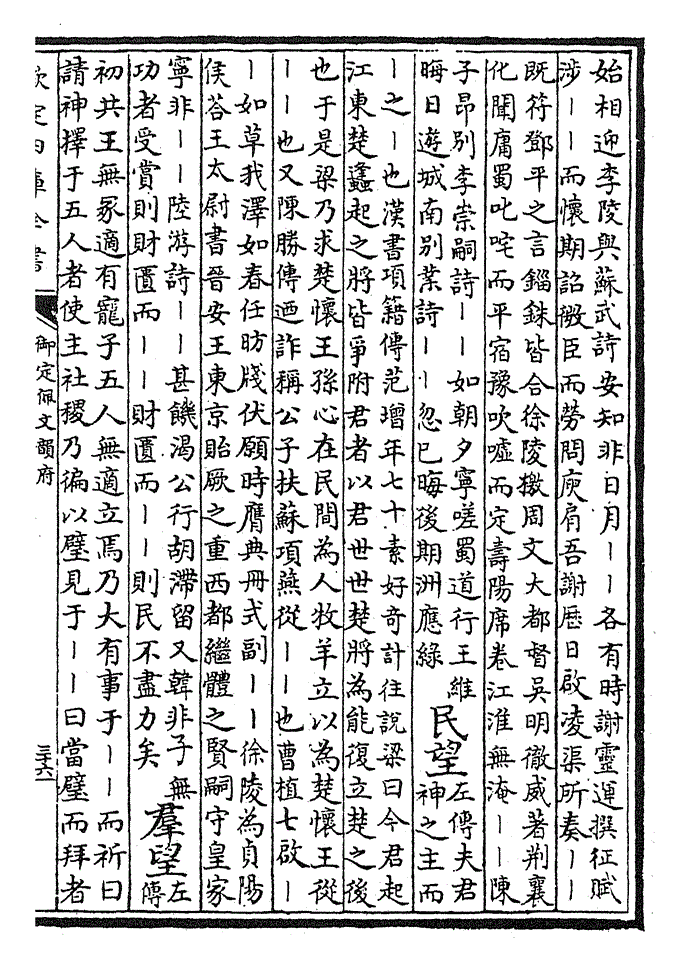 始相迎李陵與蘇武詩安知非日月丨丨各有時謝靈運撰征賦
涉丨丨而懷期詔徵臣而勞問庾肩吾謝歷日啟凌渠所奏丨丨
既符鄧平之言錙銖皆合徐陵檄周文大都督吳明徹威著荆襄
化聞庸蜀叱咤而平宿豫吹噓而定壽陽席卷江淮無淹丨丨陳
子昂別李崇嗣詩丨丨如朝夕寧嗟蜀道行王維
晦日遊城南別業詩丨丨忽已晦後期洲應綠
民望
左傳夫君
神之主而
丨之丨也漢書項籍傳范增年七十素好奇計往說梁曰今君起
江東楚蠭起之將皆爭附君者以君世世楚將為能復立楚之後
也于是梁乃求楚懷王孫心在民間為人牧羊立以為楚懷王從
丨丨也又陳勝傳迺詐稱公子扶蘇項燕從丨丨也曹植七啟丨
丨如草我澤如春任昉牋伏願時膺典冊式副丨丨徐陵為貞陽
侯荅王太尉書晉安王東京貽厥之重西都繼體之賢嗣守皇家
寧非丨丨陸游詩丨丨甚饑渴公行胡滯留又韓非子無
功者受賞則財匱而丨丨財匱而丨丨則民不盡力矣
羣望
左
傳
初共王無冢適有寵子五人無適立焉乃大有事于丨丨而祈曰
請神擇于五人者使主社稷乃徧以璧見于丨丨曰當璧而拜者
欽定四庫全書
御定佩文韻府
三十六